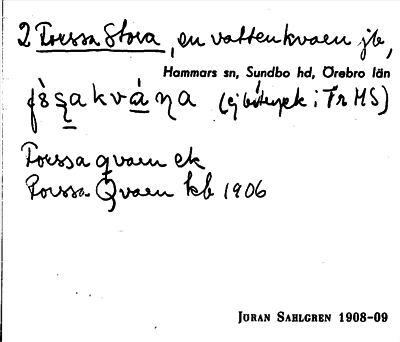 2 Forssa Stora, en vattenkvaen jb,
Hammars sn, Sundbo hd, Örebro län
(ej bitryck i Fr MS)
Forssa qvaern ek
Forssa Qvaern kb 1906
JÖRAN SAHLGREN 1908-09